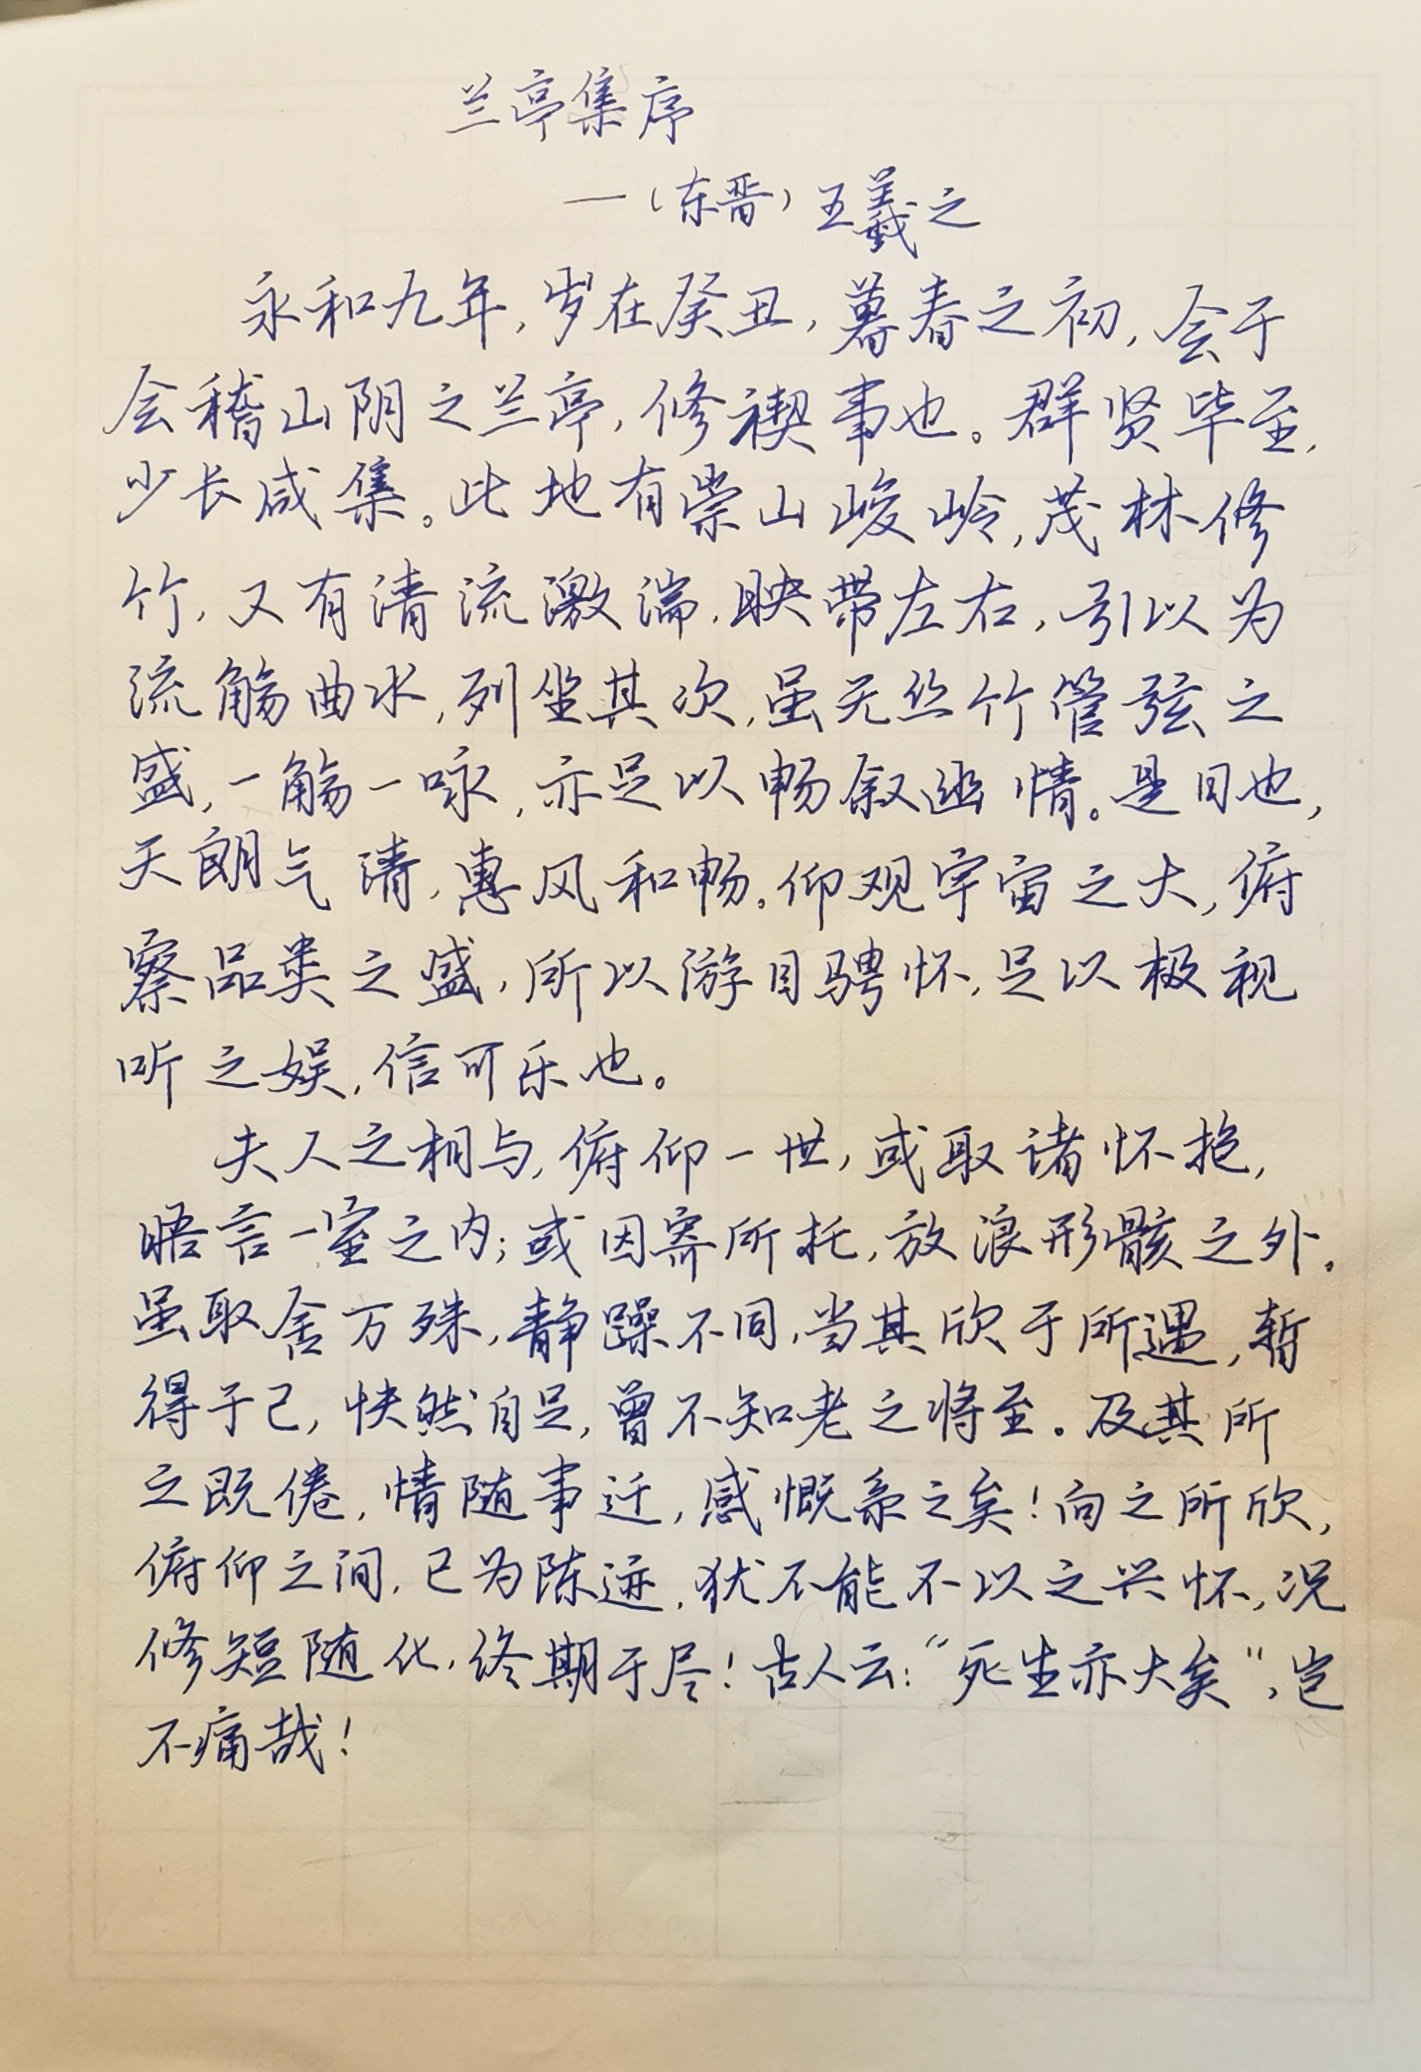 兰亭集序
—(东晋)王羲之
永和九年,岁在癸丑,暮春之初,会于
会稽山阴之兰亭,修禊事也。群贤毕至,
少长咸集。此地有崇山峻岭,茂林修
竹,又有清流激湍,映带左右,引以为
流觞曲水,列坐其次,虽无丝竹管弦之
盛,一觞一咏,亦足以畅叙幽情。是日也,
天朗气清,惠风和畅。仰观宇宙之大,俯
察品类之盛,所以游目骋怀,足以极视
听之娱,信可乐也。
夫人之相与,俯仰一世,或取诸怀抱,
晤言一室之内;或因寄所托,放浪形骸之外。
虽取舍万殊,静躁不同,当其欣于所遇,暂
得于己,快然自足,曾不知老之将至。及其所
之既倦,情随事迁,感慨系之矣!向之所欣,
俯仰之间,已为陈迹,犹不能不以之兴怀,况
修短随化,终期于尽!古人云:“死生亦大矣”,岂
不痛哉!